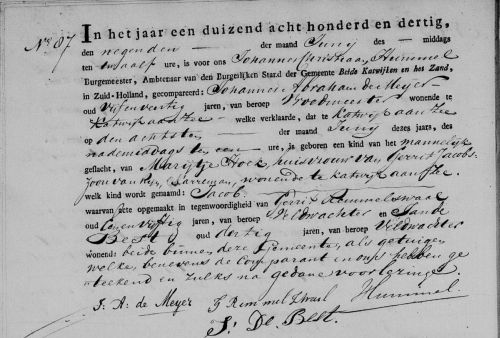 No. 87
In het jaar een duizend acht honderd en dertig,
den negenden der maand Juny des middags
ten twaalf ure, is voor ons Johannes Christiaan Hummel
Burgemeester, Ambtenaar van den Burgelijken Stand der Gemeente Beide Katwijken en het Zand,
in Zuid-Holland, gecompareerd: Johannes Abraham de Meyer
oud vijfenveertig jaren, van beroep Vroedmeester wonende te
Katwijk aan Zee welke verklaarde, dat te Katwijk aan Zee
op den achtsten der maand Juny dezes jaars, des
nademiddags ten een ure, is geboren een kind van het mannelijk
geslacht, van Marijtje Hoek, huisvrouw van Gerrit Jacobs-
zoon van Rijn, wonende te Katwijk aan Zee
welk kind wordt genaamd: Jacob
waarvan acte opgemaakt in tegenwoordigheid van Gerrit Remmelswaal
oud jaren, van beroep Veldwachter en
Best oud dertig jaren, van beroep Veldwachter
wonende beide binnen deze Gemeente, als getuigen
welke, benevens de Comparant en ons hebben ge
teekend en zulks na gedane voorlezing
J. A. de Meyer G Remmelswaal Hummel
J. De Best.